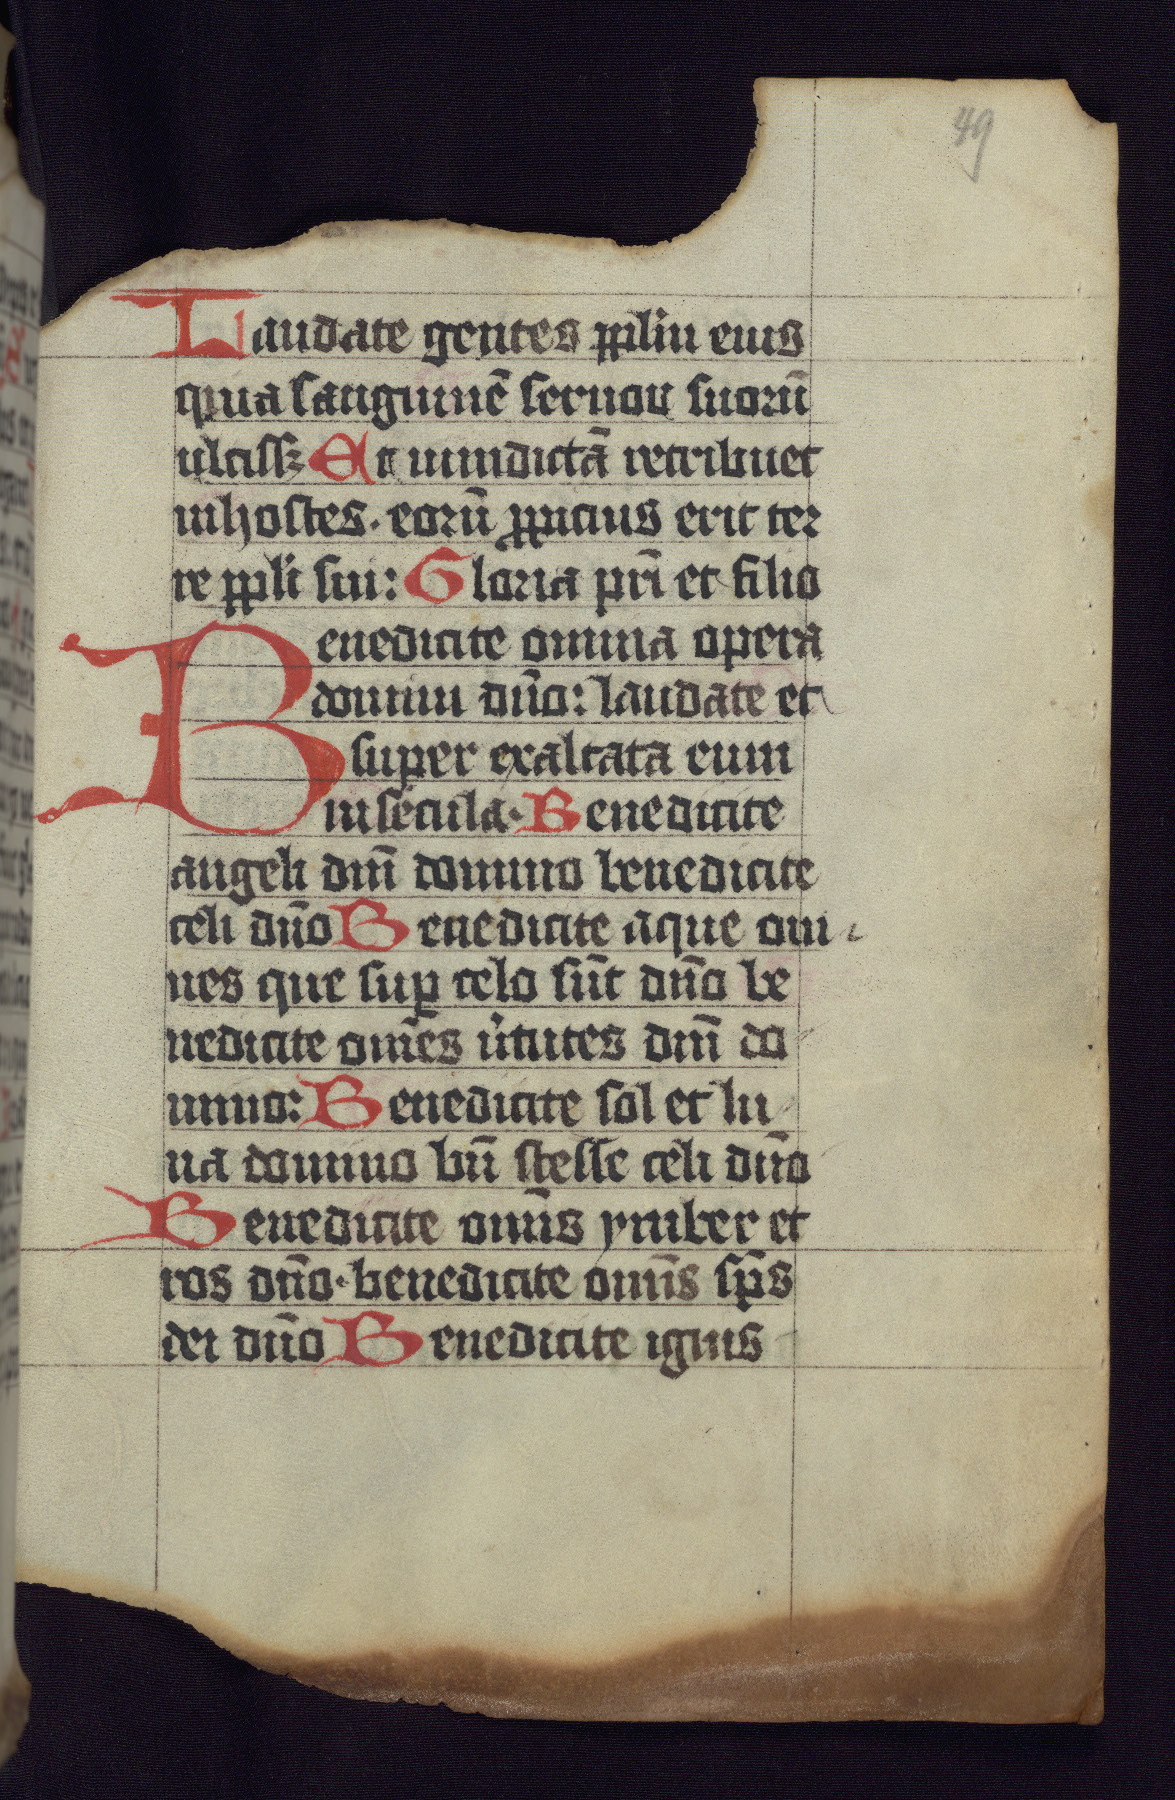 49
Laudate gentes pplm eius
quia sanguinē seruoꝝ suorū
ulcisꝫ Et uindictā retribuet
in hostes · eorū ppicius erit ter
re ppli sui: Gloria pri̅ et filio
Benedicite omnia opera
domini dn̅o: laudate et
super exaltata eum
in secula · Benedicite
angeli dm̅ domino benedicite
celi dn̅o Benedicite aque om
nes que sup celo sūt dn̅o be
nedicite om̅es u̇tutes dm̅ do
mino: Benedicite sol et lu
na domino bn̅ stelle celi dn̅o
Benedicite omīs ymber et
ros dn̅o · benedicite omīs sp̅s
dei dn̅o Benedicite ignis